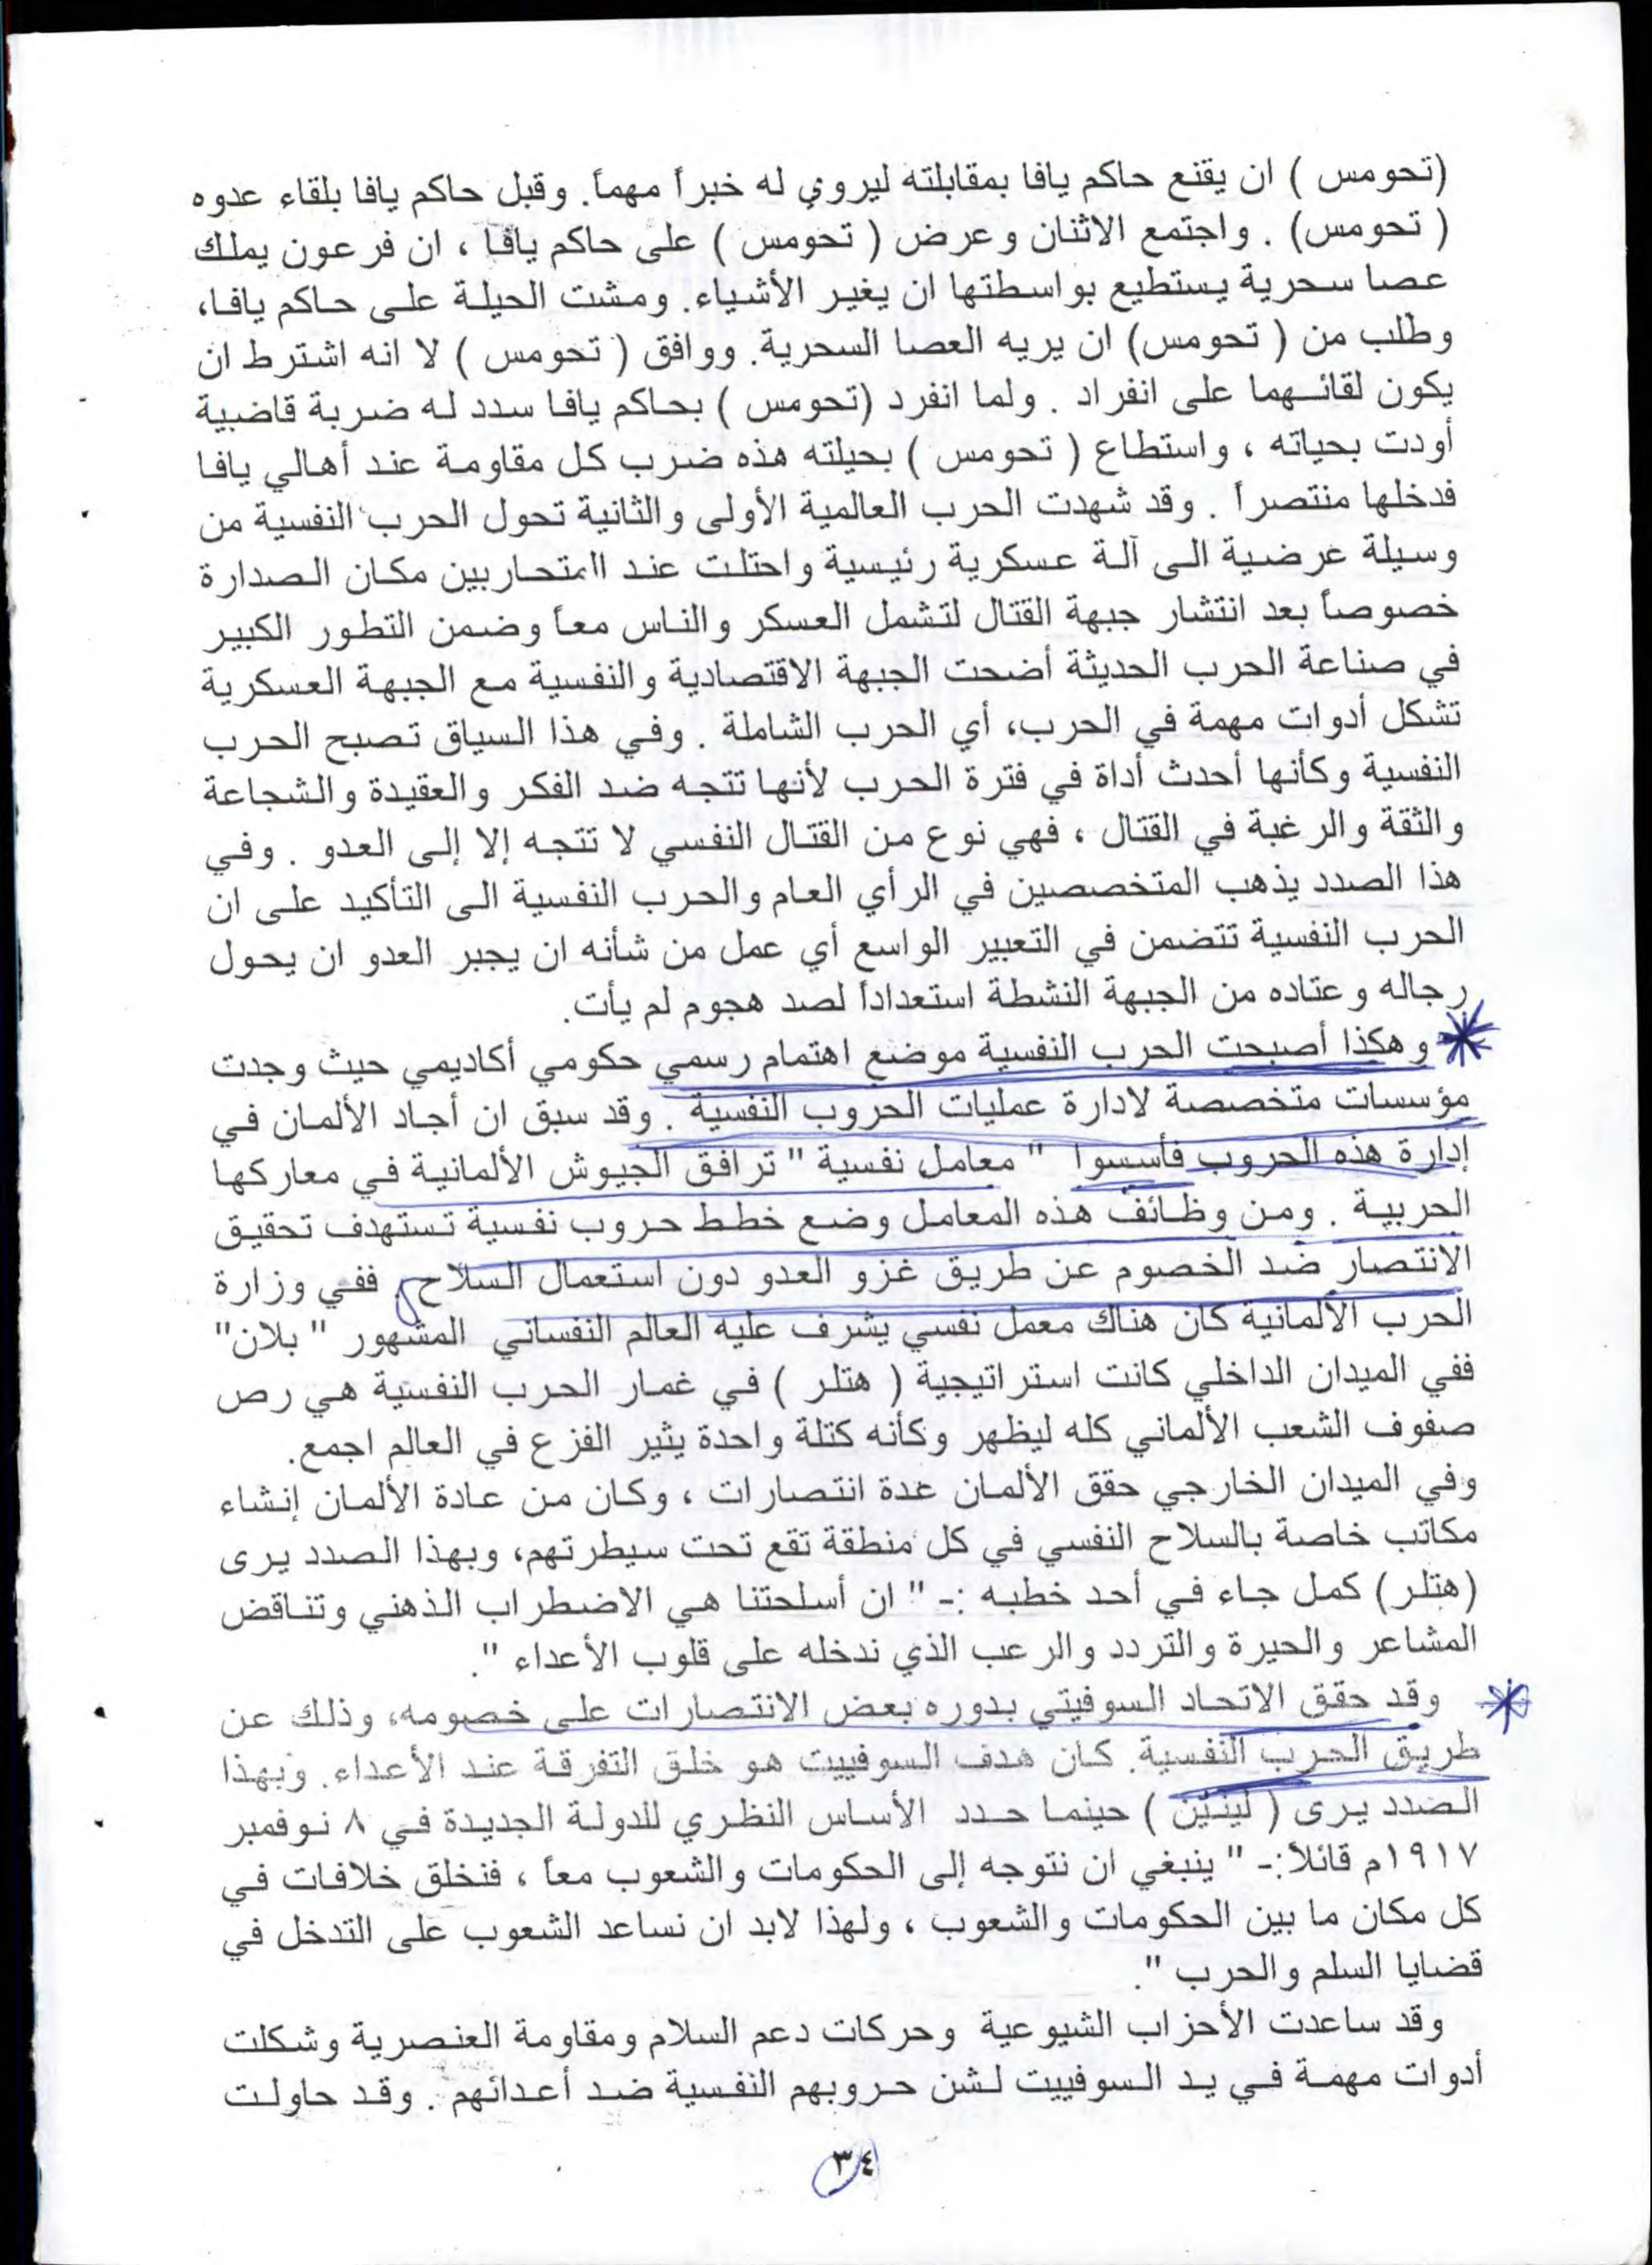 (تحومس ) ان يقنع حاكم يافا بمقابلته ليروي له خبراً مهماً. وقبل حاكم يافا بلقاء عدوه
( تحومس) . واجتمع الاثنان وعرض ( تحومس ) على حاكم يافا ، ان فرعون يملك
عصا سحرية يستطيع بواسطتها ان يغير الأشياء. ومشت الحيلة على حاكم يافا،
وطلب من ( تحومس) ان يريه العصا السحرية. ووافق ( تحومس ) لا انه اشترط ان
يكون لقائهما على انفراد . ولما انفرد (تحومس ) بحاكم يافا سدد له ضربة قاضبية
أودت بحياته ، واستطاع ( تحومس ) بحيلته هذه ضرب كل مقاومة عند أهالي يافا
فدخلها منتصراً . وقد شهدت الحرب العالمية الأولى والثانية تحول الحرب النفسية من
وسيلة عرضية الى آلة عسكرية رئيسية واحتلت عند المتحاربين مكان الصدارة
خصوصاً بعد انتشار جبهة القتال لتشمل العسكر والناس معاً وضمن التطور الكبير
في صناعة الحرب الحديثة أضحت الجبهة الاقتصادية والنفسية مع الجبهة العسكرية
تشكل أدوات مهمة في الحرب، أي الحرب الشاملة . وفي هذا السياق تصبح الحرب
النفسية وكأنها أحدث أداة في فترة الحرب لأنها تتجه ضد الفكر والعقيدة والشجاعة
والثقة والرغبة في القتال ، فهي نوع من القتال النفسي لا تتجه إلا إلى العدو . وفي
هذا الصدد يذهب المتخصصين في الرأي العام والحرب النفسية الى التأكيد على ان
الحرب النفسية تتضمن في التعبير الواسع أي عمل من شأنه ان يجبر العدو ان يحول
رجاله وعتاده من الجبهة النشطة استعداداً لصد هجوم لم يأت.
وهكذا أصبحت الحرب النفسية موضع اهتمام رسمي حكومي أكاديمي حيث وجدت
مؤسسات متخصصة لادارة عمليات الحروب النفسية . وقد سبق ان أجاد الألمان في
إدارة هذه الحروب فأسسوا " معامل نفسية " ترافق الجيوش الألمانية في معاركها
الحربية . ومن وظائف هذه المعامل وضع خطط حروب نفسية تستهدف تحقيق
الانتصار ضد الخصوم عن طريق غزو العدو دون استعمال السلاح . ففي وزارة
الحرب الألمانية كان هناك معمل نفسي يشرف عليه العالم النفساني المشهور " بلان"
ففي الميدان الداخلي كانت استراتيجية ( هتلر ) في غمار الحرب النفسية هي رص
صفوف الشعب الألماني كله ليظهر وكأنه كتلة واحدة يثير الفزع في العالم اجمع.
وفي الميدان الخارجي حقق الألمان عدة انتصارات ، وكان من عادة الألمان إنشاء
مكاتب خاصة بالسلاح النفسي في كل منطقة تقع تحت سيطرتهم، وبهذا الصدد يرى
(هتلر) كمل جاء في أحد خطبه :- " ان أسلحتنا هي الاضطراب الذهني وتناقض
المشاعر والحيرة والتردد والرعب الذي ندخله على قلوب الأعداء ".
وقد حقق الاتحاد السوفيتي بدوره بعض الانتصارات على خصومه، وذلك عن
طريق الحرب النفسية. كان هدف السوفييت هو خلق التفرقة عند الأعداء. وبهذا
الصدد يرى ( لينين ) حينما حدد الأساس النظري للدولة الجديدة في ٨ نوفمبر
١٩١٧م قائلاً:- " ينبغي ان نتوجه إلى الحكومات والشعوب معاً ، فنخلق خلافات في
كل مكان ما بين الحكومات والشعوب ، ولهذا لابد ان نساعد الشعوب على التدخل في
قضايا السلم والحرب ".
وقد ساعدت الأحزاب الشيوعية وحركات دعم السلام ومقاومة العنصرية وشكلت
أدوات مهمة في يد السوفييت لشن حروبهم النفسية ضد أعدائهم . وقد حاولت
٣٤